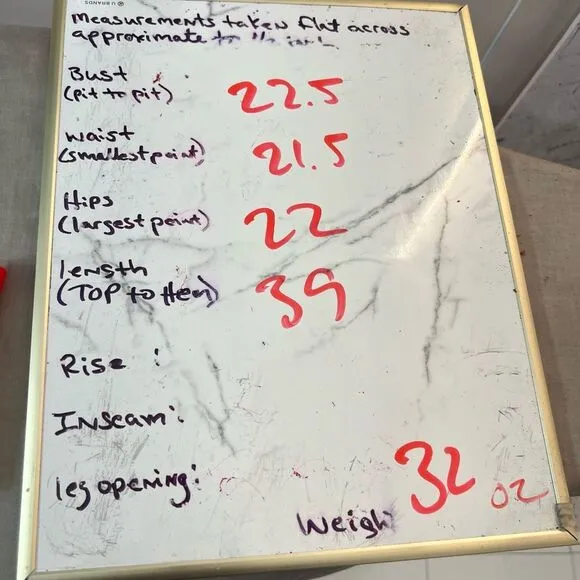 U BRANDS
Measurements taken flat across
approximate to
Bust
(pit to pit) 22.5
waist
(smallest point) 21.5
Hips
(largest point) 22
length
(TOP to Hem) 39
Rise :
Inseam:
leg opening:
Weigh 32 oz